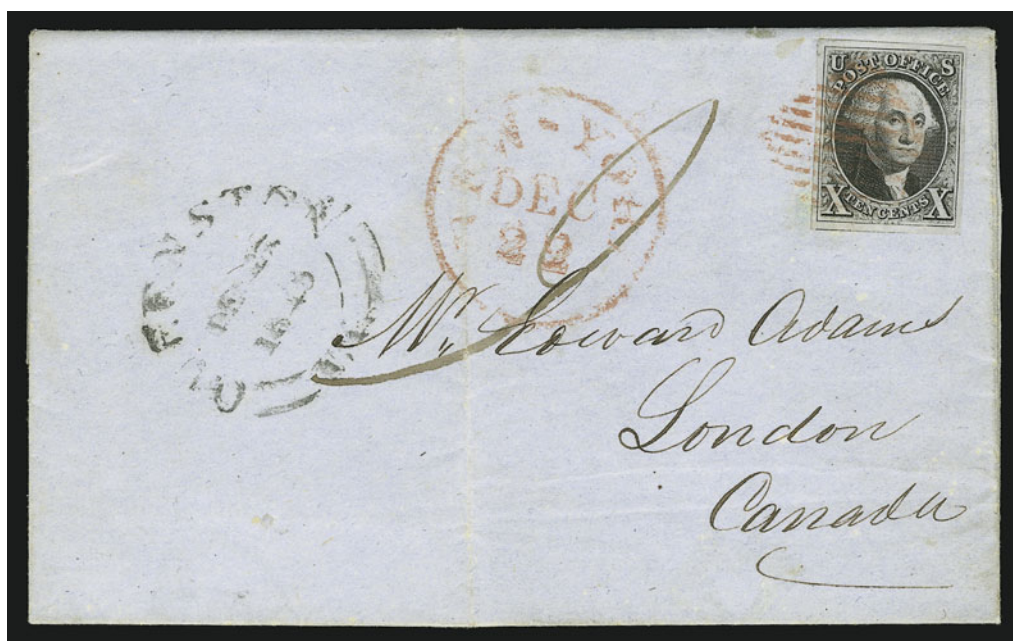 U S
POST OFFICE
X TEN CENTS X
NEW-YORK
DEC
22
QUEENSTON
Mr. Edward Adams
London
Canada